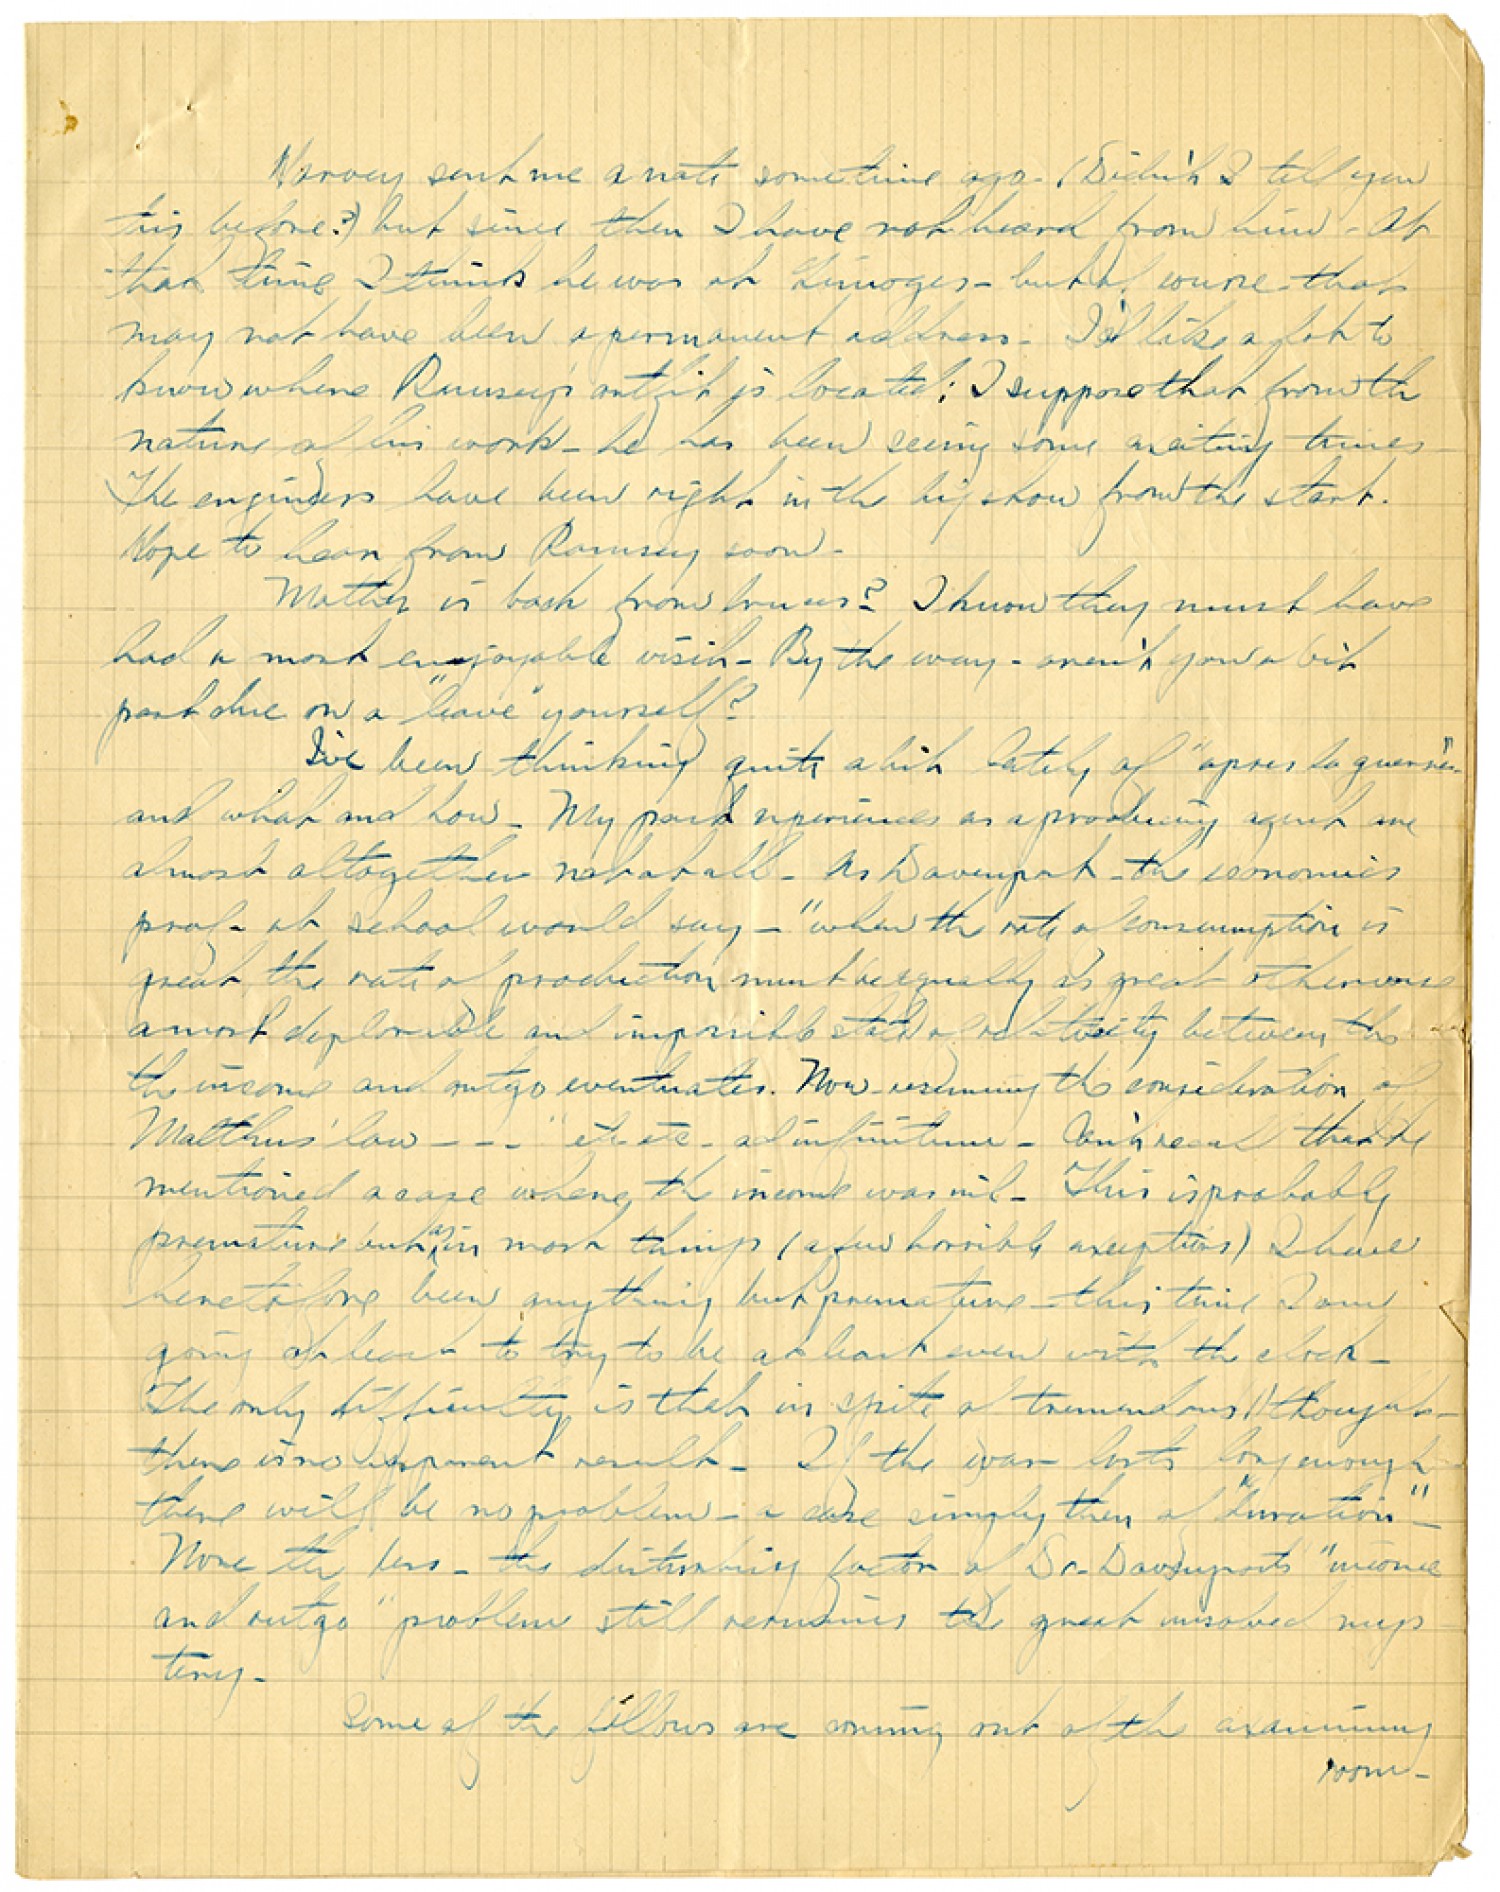 Harvey sent me a note sometime ago - (Didn't I tell you
this before?) but since then I have not heard from him - At
that time I think he was at Limoges - but of course that
may not have been a permanent address - I'd like a lot to
know where Ramsey's outfit is located; I suppose that from the
nature of his work - he has been seeing some exciting times -
The engineers have been right in the big show from the start.
Hope to hear from Ramsey soon -
Mother is back from ? I know they must have
had a most enjoyable visit - By the way - aren't you a bit
past due on a "leave" yourself?
I've been thinking quite a bit lately of "apres la guerre" -
and what and how - My past experiences as a producing agent are
almost altogether not at all - As Davenport - the economics
prof - at school would say - "when the rate of consumption is
great, the rate of production must be equally as great otherwise
a most deplorable and impossible state of relativity between the
the income and outgo eventuates. Now resuming the consideration of
Malthus' law - - - " etc etc - ad infinitum - Can't recall that he
mentioned a case where the income was nil - This is probably
premature but as in most things (a few horrible exceptions) I have
heretofore been anything but premature - this time I am
going at least to try to be at least even with the clock -
The only difficulty is that in spite of tremendous thought -
there is no apparent result - If the war lasts long enough -
there will be no problem - a case simply then of "duration" -
None the less - the disturbing factor of Dr. Davenport's "income
and outgo" problem still remains the great unsolved mys
tery -
Some of the fellows are coming out of the examining
room -